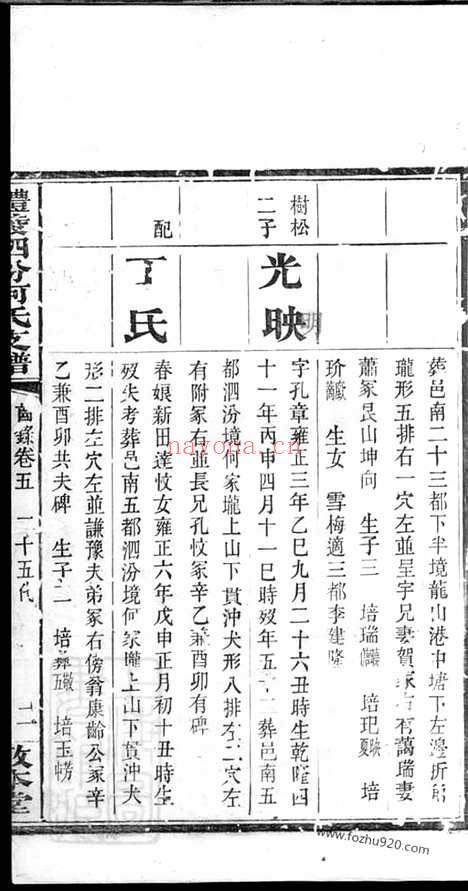 葬邑南二十三都下半境龍山港中塘下左邊所前
瓏形五排右一穴左並呈宇兄妻賀冢右有萬瑞妻
蕭冢艮山坤向 生子三 培瑞 培玘 培
玠 生女 雪梅適三都李建隆
樹松二子
光映
明
字孔章雍正三年乙巳九月二十六丑時生乾隆四
十一年丙申四月十一巳時歿年五十二葬邑南五
都泗汾境何家壠上山下貫沖犬形八排左二穴左
有附冢右並長兄孔忮冢辛乙兼酉卯有碑
配
丁氏
春娘新田達忮女雍正六年戊申正月初十丑時生
歿失考葬邑南五都泗汾境何家壠上山下貫沖犬
形二排左穴左並謙豫夫弟冢右傍翁康齡公冢辛
乙兼酉卯共夫碑 生子二 培彝 培玉
醴陵泗汾何氏支譜
齒錄卷五 二十五代
二
敦本堂
nayona.cn
www.fozhu920.com